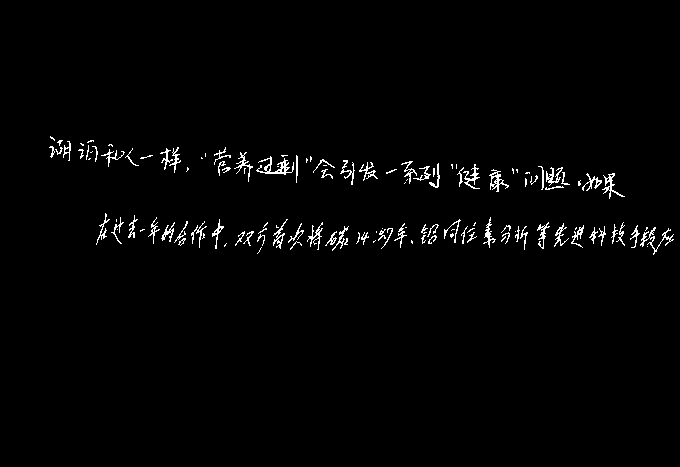 湖泊和人一样，“营养过剩”会引发一系列“健康”问题。如果
在过去一年的合作中，双方首次将碳14测年、铅同位素分析等先进科技手段应